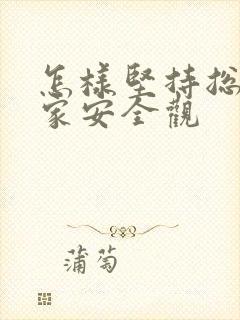 怎樣堅持总
家安全觀
蒲萄